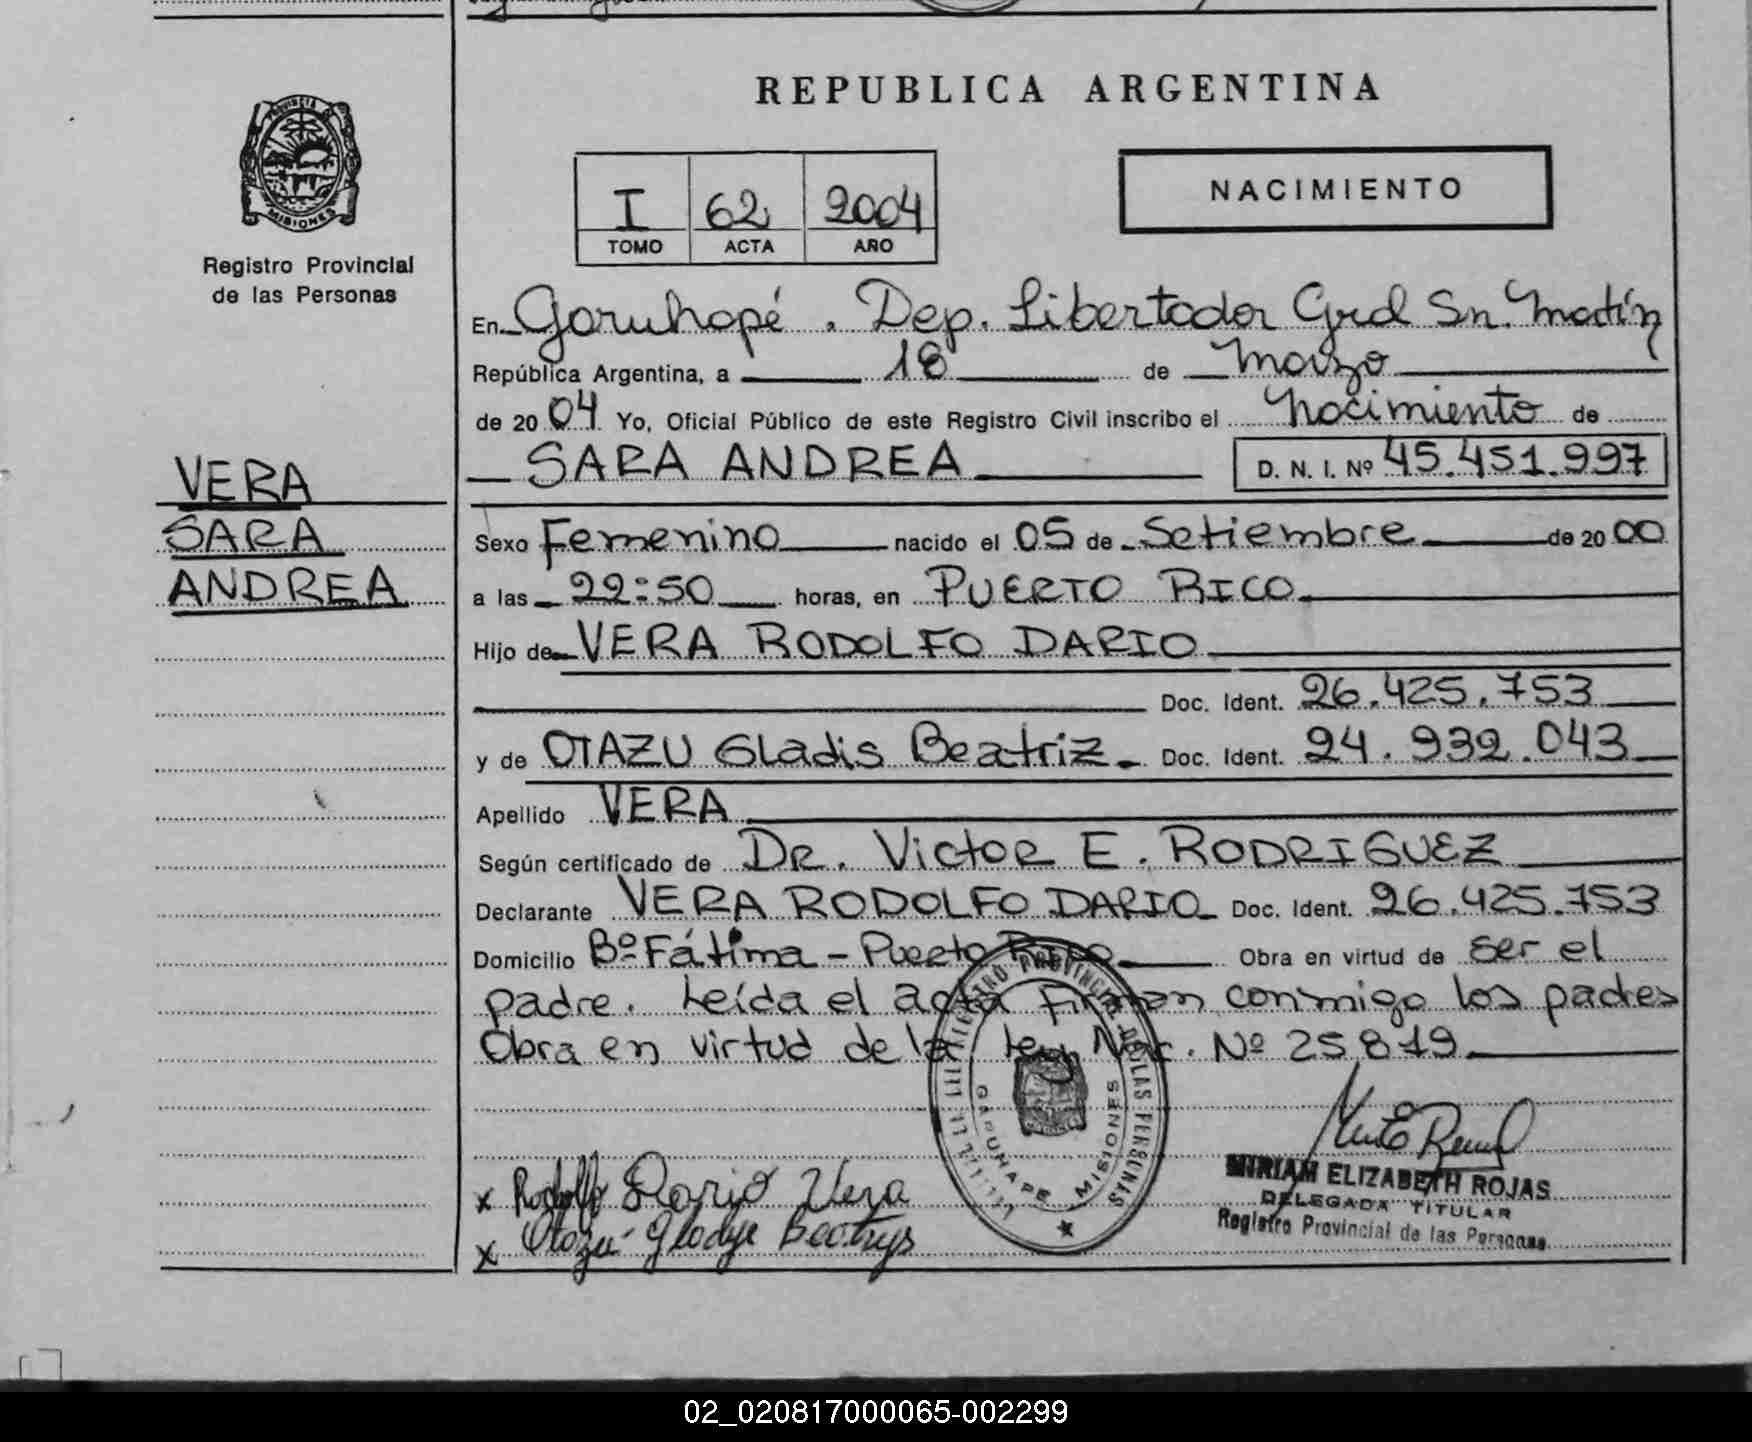 REPUBLICA ARGENTINA
PROVINCIA
MISIONES
Registro Provincial
de las Personas
I 62 2004
TOMO ACTA AÑO
NACIMIENTO
En Garuhapé . Dep. Libertador Gral Sn. Martín
República Argentina, a 18 de Marzo
de 2004 Yo, Oficial Público de este Registro Civil inscribo el Nacimiento de
SARA ANDREA D. N. I. Nº 45.451.997
VERA
SARA
ANDREA
Sexo Femenino nacido el 05 de Setiembre de 2000
a las 22:50 horas, en PUERTO RICO
Hijo de VERA RODOLFO DARIO
Doc. Ident. 26.425.753
y de OTAZU Gladis Beatriz Doc. Ident. 24.932.043
Apellido VERA
Según certificado de DR. Victor E. RODRIGUEZ
Declarante VERA RODOLFO DARIO Doc. Ident. 26.425.753
Domicilio Bº Fátima - Puerto Rico Obra en virtud de ser el
padre. Leída el acta firman conmigo los padres
Obra en virtud de la Ley Nac. Nº 25.819
REGISTRO PROVINCIAL DE LAS PERSONAS
GARUHAPE MISIONES
x Rodolfo Dario Vera
x Otazu Gladys Beatrys
MIRIAM ELIZABETH ROJAS
DELEGADA TITULAR
Registro Provincial de las Personas
02_020817000065-002299